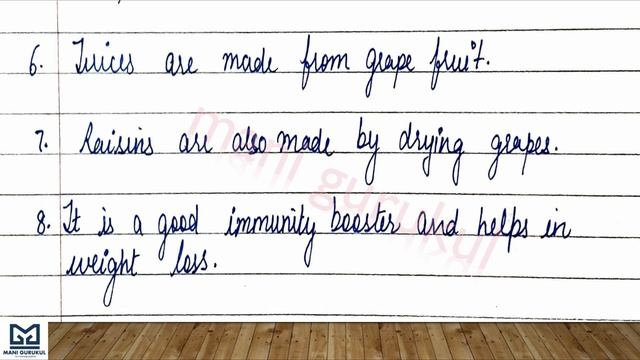 6. Juices are made from grape fruit.
7. Raisins are also made by drying grapes.
8. It is a good immunity booster and helps in
weight loss.
mani gurukul
MANI GURUKUL